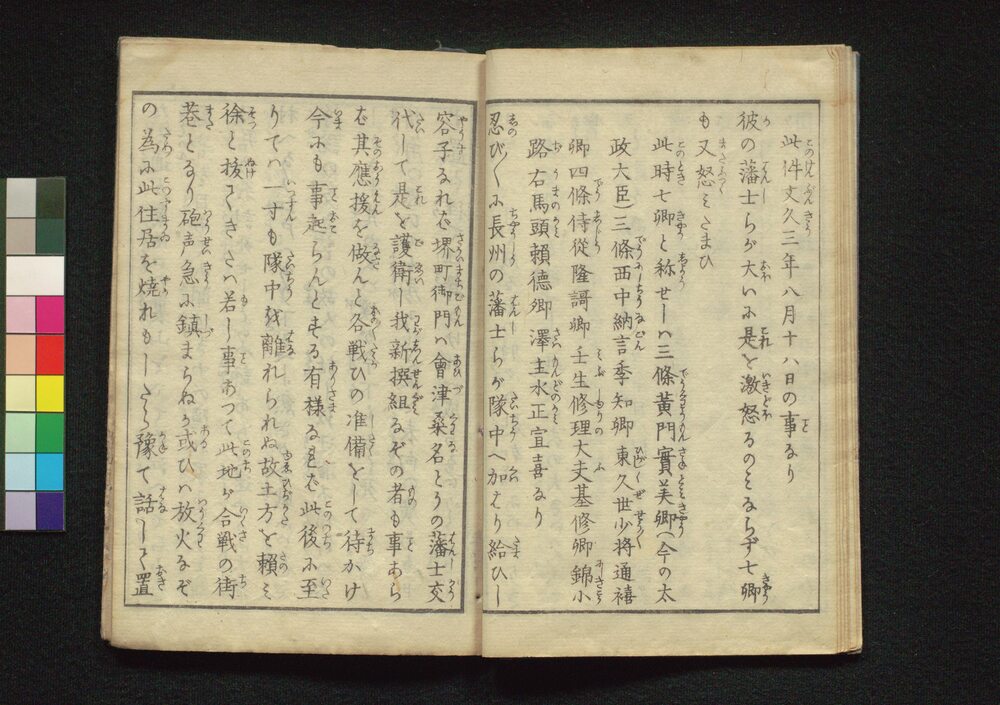 此件文久三年八月十八日の事なり
彼の藩士らが大いに是を激怒るのみならず七卿
も又怒らせたまひ
此時七卿と称せしハ三條黄門實美卿（今の太
政大臣）三條西中納言季知卿 東久世少将通禧
卿四條侍從隆謌卿壬生修理大夫基修卿錦小
路右馬頭賴德卿 澤主水正宣喜なり
忍び〱に長州の藩士らが隊中へ加はり給ひし
容子なれバ堺町御門ハ會津桑名とうの藩士交
代して是を護衛し我新撰組なぞの者も事あら
バ其應援を做んと各戦ひの准備をして待かけ
今にも事起らんとする有様なれバ此後に至
りてハ一寸も隊中を離れられぬ故土方を賴み
徐と拔てきたハ若し事あつて此地が合戦の街
巷となり砲声急に鎮まらぬか或ひハ放火なぞ
の為に此住居を焼れもしたら豫て話して置